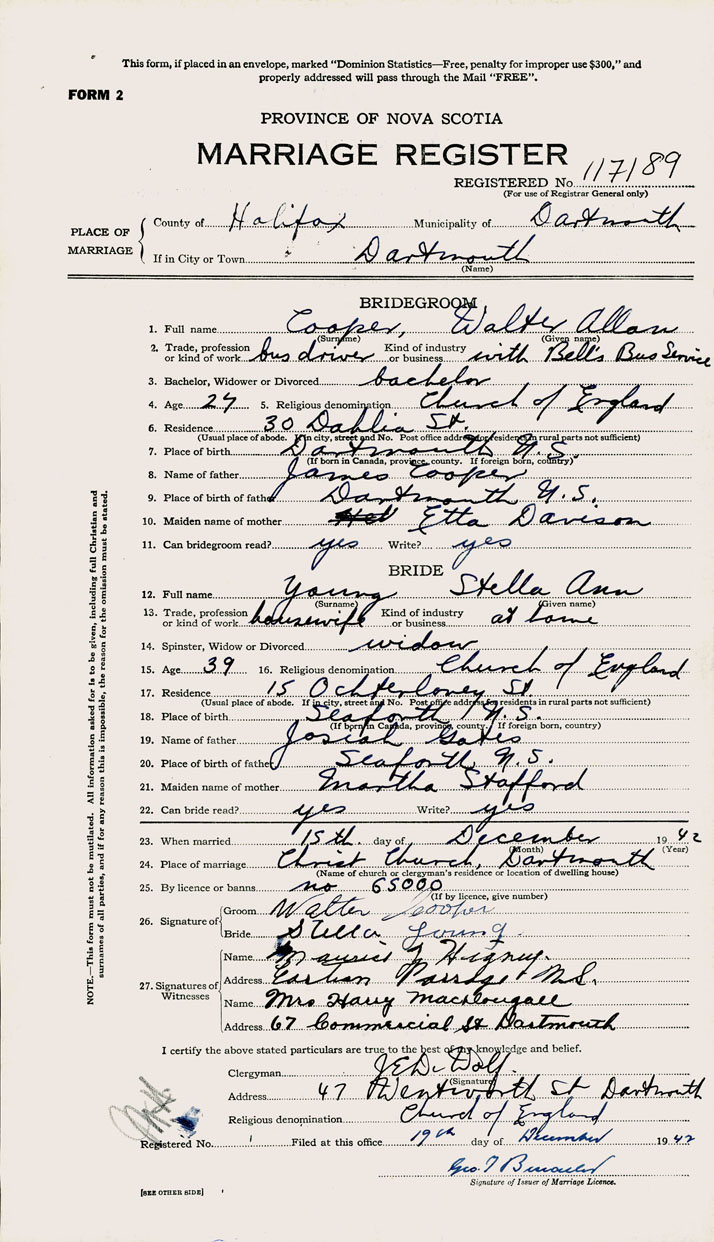 This form, if placed in an envelope, marked "Dominion Statistics—Free, penalty for improper use $300," and
properly addressed will pass through the Mail "FREE".
FORM 2
PROVINCE OF NOVA SCOTIA
MARRIAGE REGISTER
REGISTERED No. 117189
(For use of Registrar General only)
PLACE OF MARRIAGE
County of Halifax Municipality of Dartmouth
If in City or Town Dartmouth
(Name)
BRIDEGROOM
1. Full name Cooper, Walter Allan
(Surname) (Given name)
2. Trade, profession or kind of work bus driver Kind of industry or business with Bell's Bus Service
3. Bachelor, Widower or Divorced bachelor
4. Age 27 5. Religious denomination Church of England
6. Residence 30 Dahlia St.
(Usual place of abode. If in city, street and No. Post office address for residents in rural parts not sufficient)
7. Place of birth Dartmouth N.S.
(If born in Canada, province, county. If foreign born, country)
8. Name of father James Cooper
9. Place of birth of father Dartmouth N.S.
10. Maiden name of mother Etta Davison
11. Can bridegroom read? yes Write? yes
BRIDE
12. Full name Young Stella Ann
(Surname) (Given name)
13. Trade, profession or kind of work housewife Kind of industry or business at home
14. Spinster, Widow or Divorced widow
15. Age 39 16. Religious denomination Church of England
17. Residence 15 Ochterloney St
(Usual place of abode. If in city, street and No. Post office address for residents in rural parts not sufficient)
18. Place of birth Seaforth N.S.
(If born in Canada, province, county. If foreign born, country)
19. Name of father Josiah Gates
20. Place of birth of father Seaforth N.S.
21. Maiden name of mother Martha Stafford
22. Can bride read? yes Write? yes
23. When married 15th. day of December 1942
(Month) (Year)
24. Place of marriage Christ Church, Dartmouth
(Name of church or clergyman's residence or location of dwelling house)
25. By licence or banns no 65000
(If by licence, give number)
26. Signature of
Groom Walter Cooper
Bride Stella Young
27. Signatures of Witnesses
Name Maurice J
Address Passage N.S.
Name Mrs Harry MacDougall
Address 67 Commercial St Dartmouth
I certify the above stated particulars are true to the best of my knowledge and belief.
Clergyman J E DeWolf.
(Signature)
Address 47 Wentworth St Dartmouth
Religious denomination Church of England
Registered No. Filed at this office 19th day of December 1942
Geo. T
Signature of Issuer of Marriage Licence.
[SEE OTHER SIDE]
NOTE.—This form must not be mutilated. All information asked for is to be given, including full Christian and
surnames of all parties, and if for any reason this is impossible, the reason for the omission must be stated.